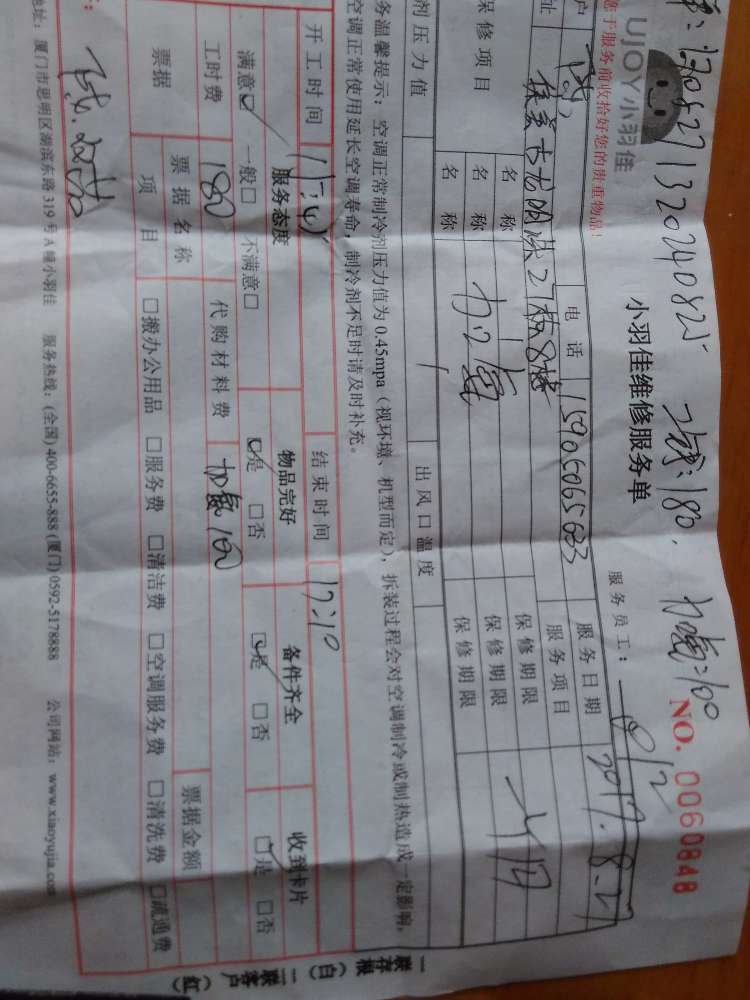 170827132024082
工时费:180.
加氟:100
UJOY小羽佳
小羽佳维修服务单
NO. 0060848
您于服务前收拾好您的贵重物品!
服务员工:
户
电话 15905065683 服务日期 2017.8.27
址
27栋8楼
服务项目
保修项目
名称
保修期限
名称 加氟 保修期限 一个月
名称
保修期限
剂压力值
出风口温度
务温馨提示:空调正常制冷剂压力值为0.45mpa(视环境、机型而定),拆装过程会对空调制冷或制热造成一定影响,
空调正常使用延长空调寿命,制冷剂不足时请及时补充。
开工时间
结束时间 17:10
服务态度
物品完好
备件齐全
收到卡片
满意☑ 一般□ 不满意□
☑是 □否
☑是 □否
☑是 □否
工时费 180 代购材料费 加氟100
票据金额
票据
票据名称
项目
□搬办公用品 □服务费 □清洁费 □空调服务费 □清洗费 □疏通费
地址:厦门市思明区湖滨东路319号A幢小羽佳 服务热线:(全国)400-6655-888 (厦门)0592-5178888 公司网站:www.xiaoyujia.com
一联存根(白) 二联客户(红)